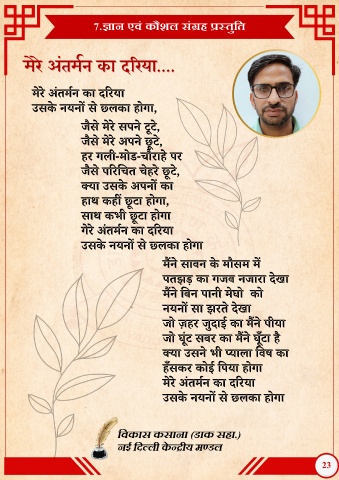 7.ज्ञान एवं कौशल संग्रह प्रस्तुति
मेरे अंतर्मन का दरिया....
मेरे अंतर्मन का दरिया
उसके नयनों से छलका होगा,
जैसे मेरे सपने टूटे,
जैसे मेरे अपने छूटे,
हर गली-मोड-चौराहे पर
जैसे परिचित चेहरे छूटे,
क्या उसके अपनों का
हाथ कहीं छूटा होगा,
साथ कभी छूटा होगा
गेरे अंतर्मन का दरिया
उसके नयनों से छलका होगा
मैंने सावन के मौसम में
पतझड़ का गजब नजारा देखा
मैंने बिन पानी मेघो को
नयनों सा झरते देखा
जो ज़हर जुदाई का मैंने पीया
जो घूंट सबर का मैंने घूँटा है
क्या उसने भी प्याला विष का
हँसकर कोई पिया होगा
मेरे अंतर्मन का दरिया
उसके नयनों से छलका होगा
विकास कसाना (डाक सहा.)
नई दिल्ली केन्द्रीय मण्डल
23